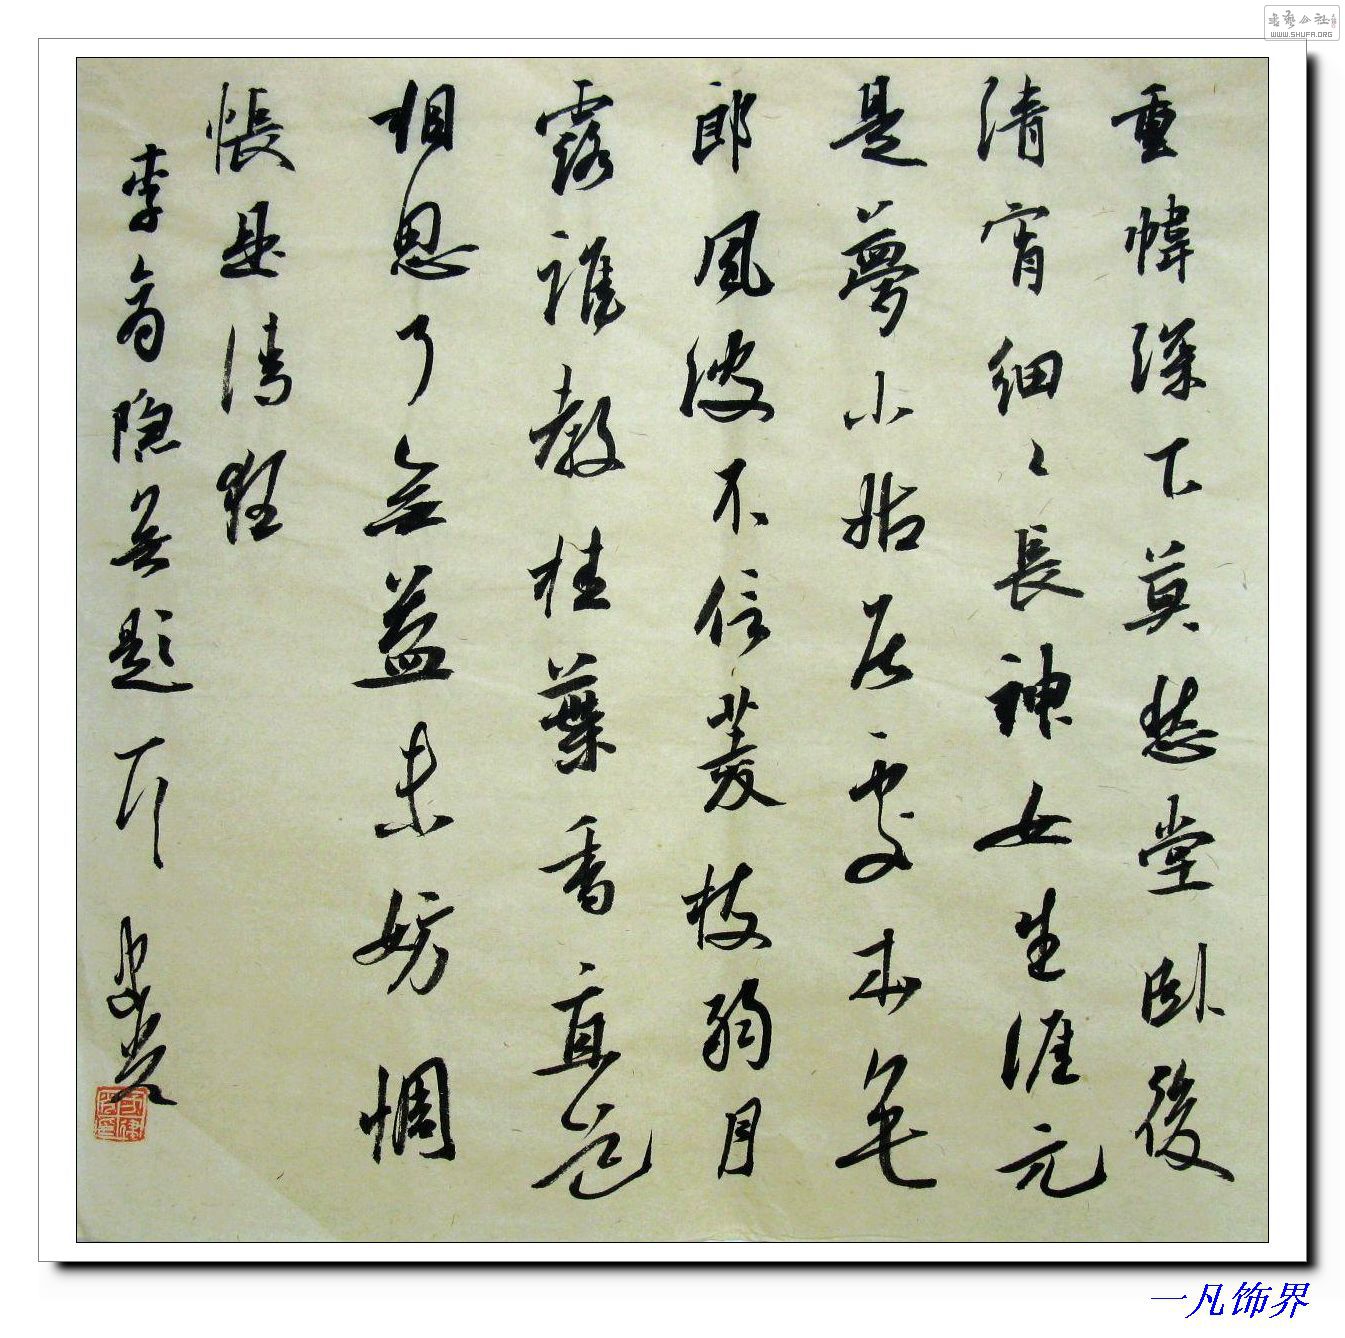 重幃深下莫愁堂卧後
清宵細々長神女生涯元
是夢小姑居處本無
郎風波不信菱枝弱月
露誰教桂葉香直道
相思了無益未妨惆
悵是清狂
李商隐無題
書藝公社
WWW.SHUFA.ORG
一凡饰界